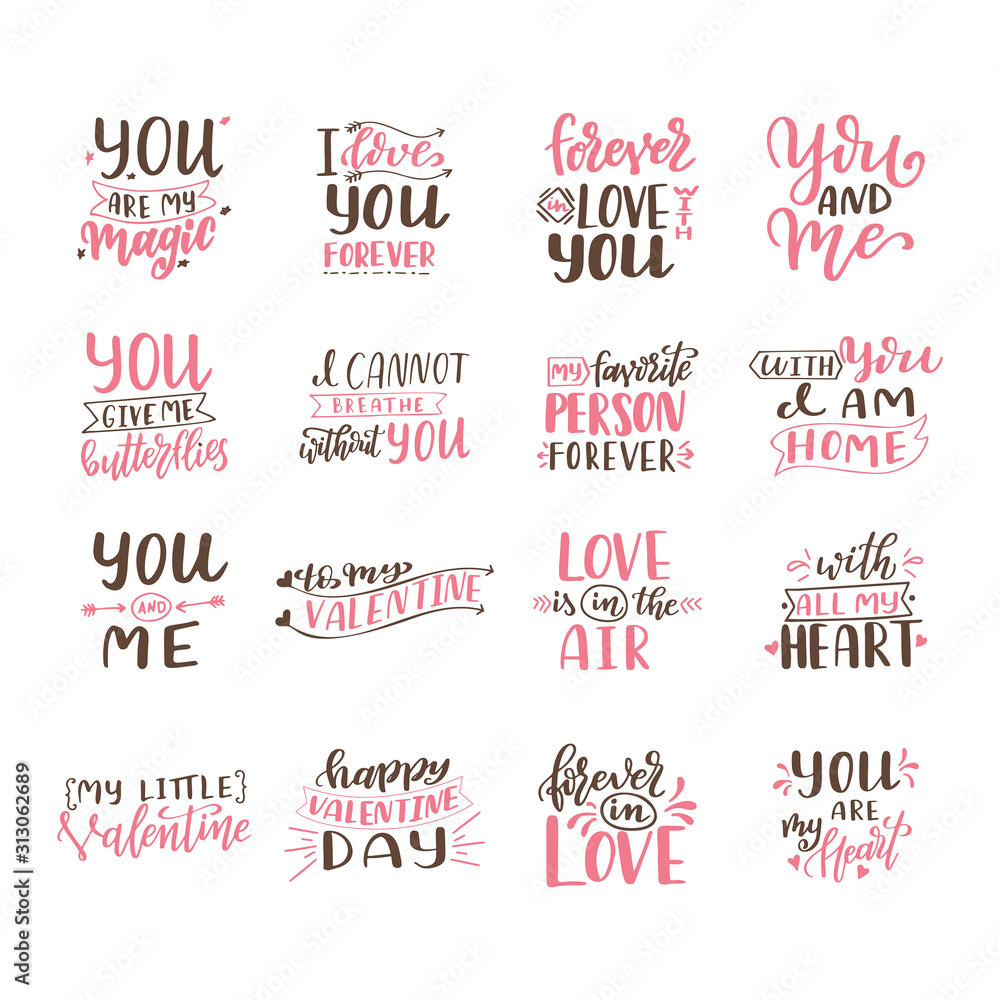 YOU
ARE MY
magic
I love
YOU
FOREVER
forever
in LOVE WITH
YOU
You
AND
me
YOU
GIVE ME
butterflies
I CANNOT
BREATHE
without YOU
MY favorite
PERSON
FOREVER
WITH you
I AM
HOME
YOU
AND
ME
to my
VALENTINE
LOVE
is in the
AIR
with
ALL MY
HEART
{MY LITTLE}
Valentine
happy
VALENTINE
DAY
forever
in
LOVE
YOU
ARE
my Heart
Adobe Stock | #313062689